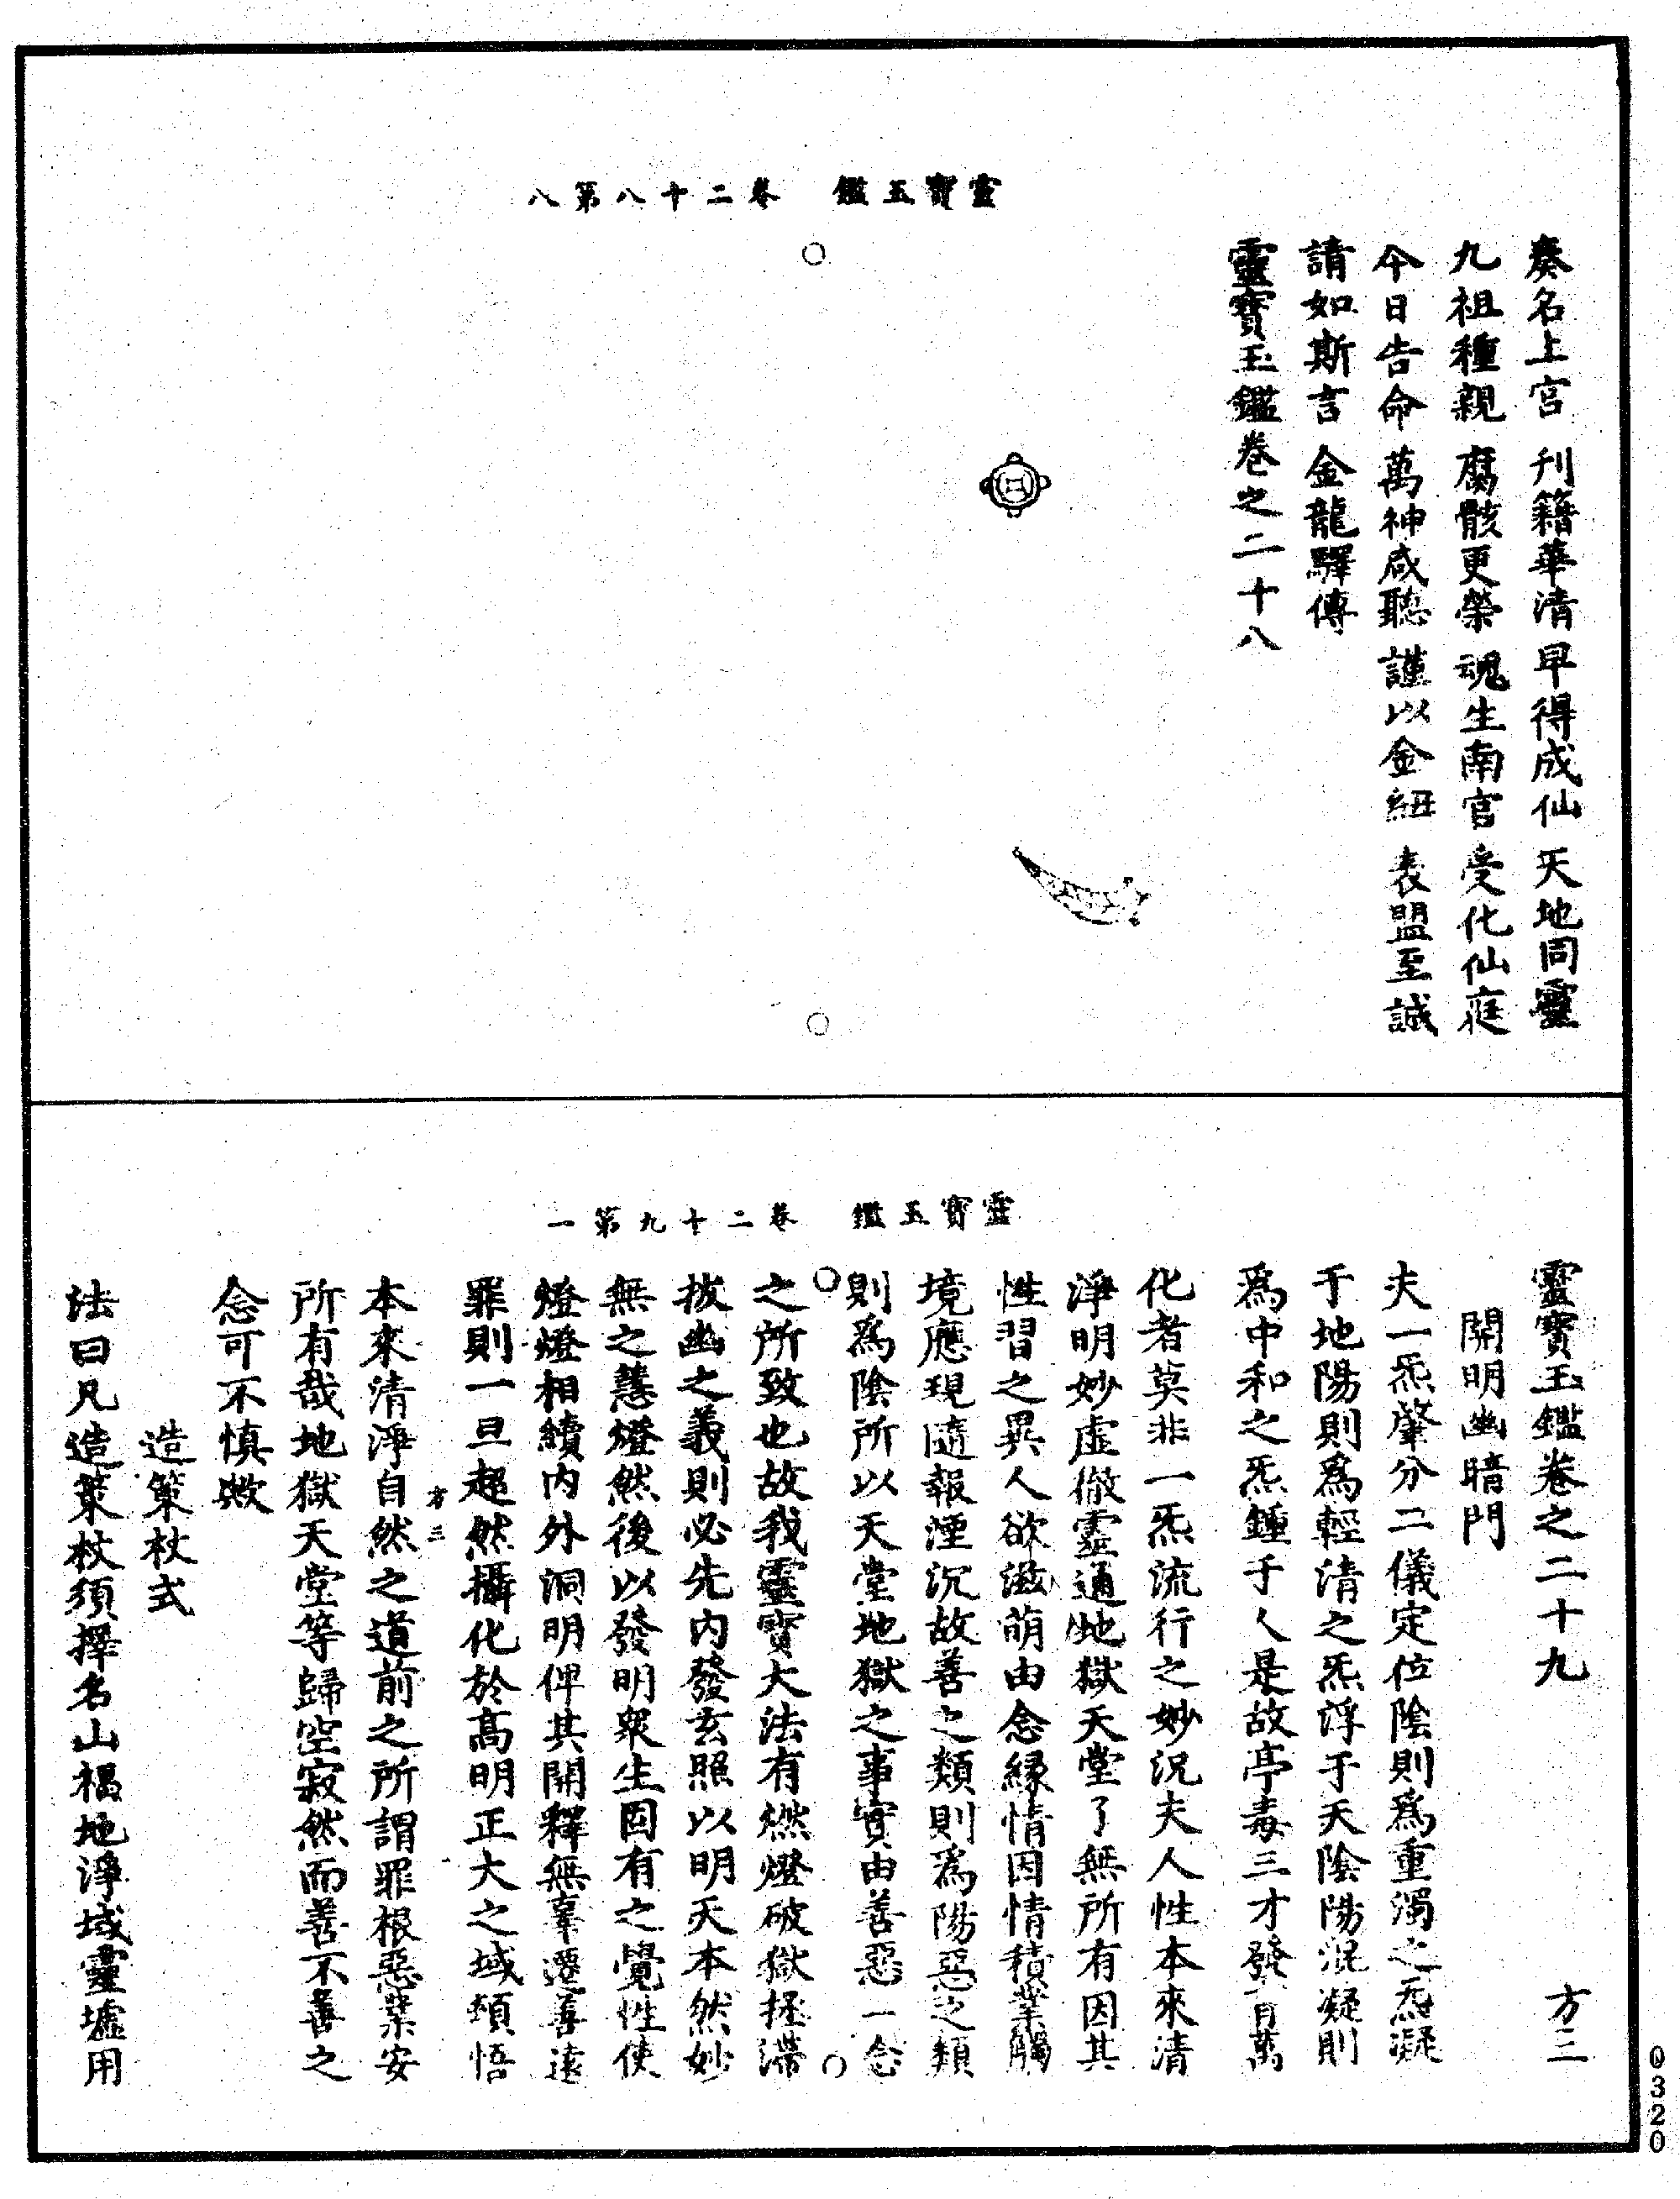 靈寶玉鑑　卷二十八第八
奏名上宮　刊籍華清　早得成仙　天地同靈
九祖種親　腐骸更榮　魂生南宮　受化仙庭
今日告命　萬神咸聽　謹以金紐　表盟至誠
請如斯言　金龍驛傳
靈寶玉鑑卷之二十八
靈寶玉鑑　卷二十九第一
靈寶玉鑑卷之二十九　方三
開明幽暗門
夫一炁肇分二儀定位陰則爲重濁之炁凝
于地陽則爲輕清之炁浮于天陰陽混凝則
爲中和之炁鍾于人是故亭毒三才發育萬
化者莫非一炁流行之妙況夫人性本來清
淨明妙虛徹靈通地獄天堂了無所有因其
性習之異人欲滋萌由念緣情因情積業觸
境應現隨報湮沉故善之類則爲陽惡之類
則爲陰所以天堂地獄之事實由善惡一念
之所致也故我靈寶大法有燃燈破獄拯滯
拔幽之義則必先內發玄照以明天本然妙
無之慧燈然後以發明衆生固有之覺性使
燈燈相續內外洞明俾其開釋無辜遷善遠
罪則一旦超然攝化於高明正大之域頓悟
方三
本來清淨自然之道前之所謂罪根惡業安
所有哉地獄天堂等歸空寂然而善不善之
念可不慎歟
造策杖式
法曰凡造策杖須擇名山福地淨域靈墟用
0320